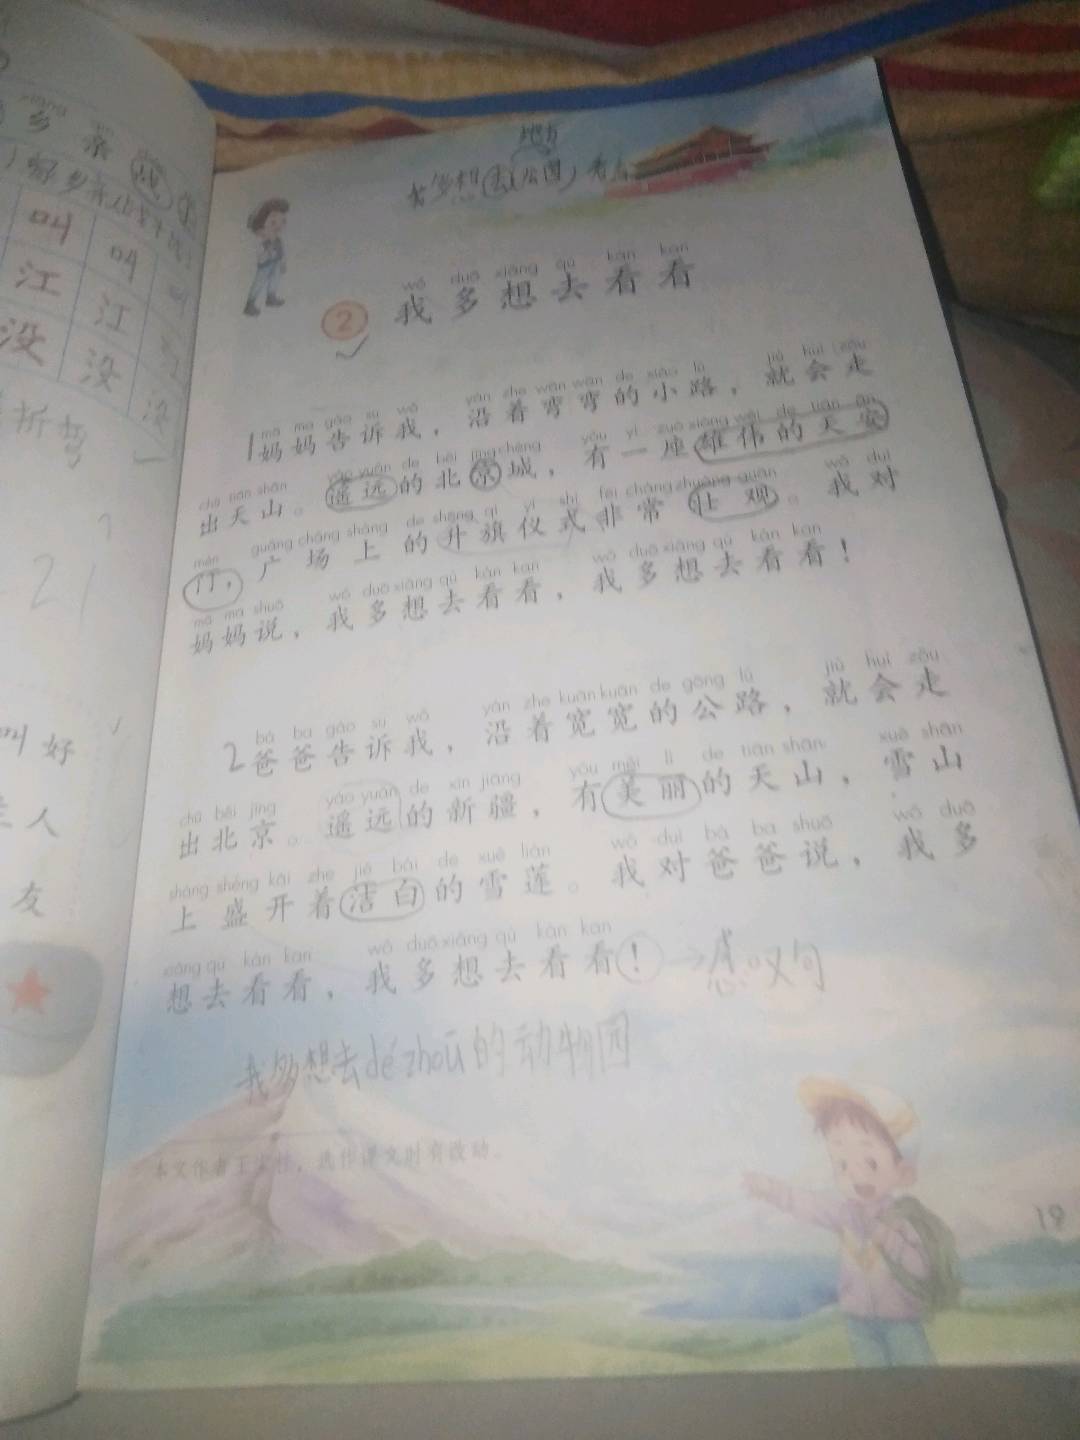 乡亲
叫 叫
江 江
没 没 没
折弯
21
叫好
人
友
地方
我多想去(公园)看看
wǒ duō xiǎng qù kàn kan
② 我多想去看看
mā ma gào su wǒ yán zhe wān wān de xiǎo lù jiù huì zǒu
1妈妈告诉我，沿着弯弯的小路，就会走
chū tiān shān yáo yuǎn de běi jīng chéng yǒu yí zuò xióng wěi de tiān ān
出天山。遥远的北京城，有一座雄伟的天安
mén guǎng chǎng shàng de shēng qí yí shì fēi cháng zhuàng guān wǒ duì
门，广场上的升旗仪式非常壮观。我对
mā ma shuō wǒ duō xiǎng qù kàn kan wǒ duō xiǎng qù kàn kan
妈妈说，我多想去看看，我多想去看看！
bà ba gào su wǒ yán zhe kuān kuān de gōng lù jiù huì zǒu
2爸爸告诉我，沿着宽宽的公路，就会走
chū běi jīng yáo yuǎn de xīn jiāng yǒu měi lì de tiān shān xuě shān
出北京。遥远的新疆，有美丽的天山，雪山
shàng shèng kāi zhe jié bái de xuě lián wǒ duì bà ba shuō wǒ duō
上盛开着洁白的雪莲。我对爸爸说，我多
xiǎng qù kàn kan wǒ duō xiǎng qù kàn kan
想去看看，我多想去看看！→感叹句
我多想去dé zhōu的动物园
本文作者王，选作课文时有改动。
19